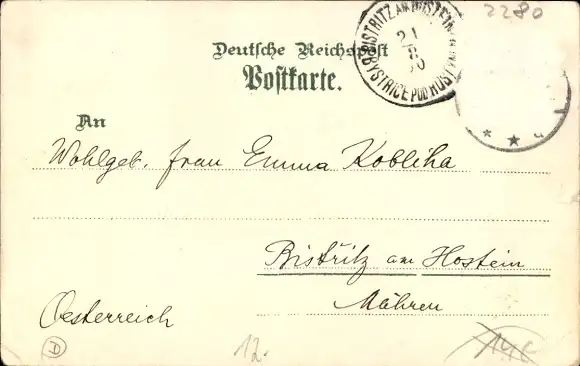 2280
BISTRITZ AM HOSTEIN
21
8
BYSTRICE POD HOST
Deutsche Reichspost
Postkarte.
An
Wohlgeb. Frau Emma Kobliha
Bistritz am Hostein
Mähren
Oesterreich
12.